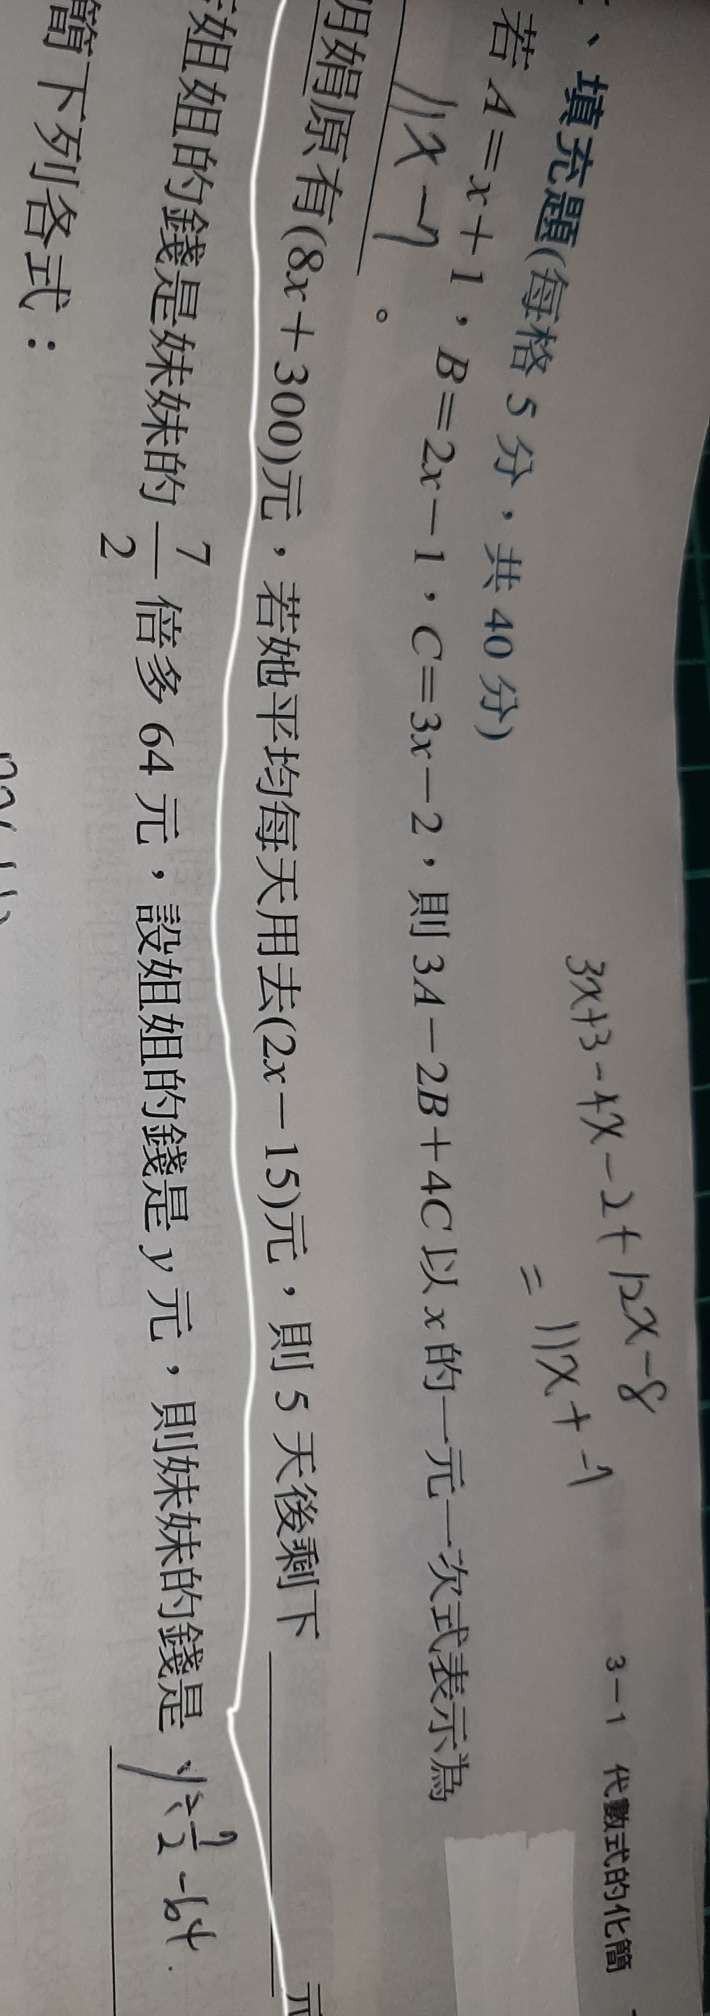 3-1 代數式的化簡
3x+3-4x-2+12x-8
= 11x+-7
、填充題(每格 5 分，共 40 分)
若 A=x+1，B=2x-1，C=3x-2，則 3A-2B+4C 以 x 的一元一次式表示為
11x-7 。
娟原有(8x+300)元，若她平均每天用去(2x-15)元，則 5 天後剩下 元
姐姐的錢是妹妹的 7/2 倍多 64 元，設姐姐的錢是 y 元，則妹妹的錢是 y÷7/2-64.
簡下列各式：